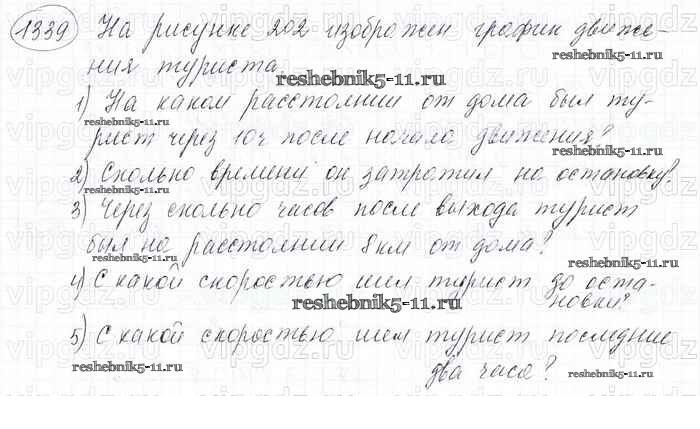 1339 На рисунке 202 изображен график движе-
ния туриста.
reshebnik5-11.ru
1) На каком расстоянии от дома был ту-
reshebnik5-11.ru
reshebnik5-11.ru
рист через 10ч после начала движения?
reshebnik5-11.ru
2) Сколько времени он затратил на остановку?
reshebnik5-11.ru
reshebnik5-11.ru
3) Через сколько часов после выхода турист
был на расстоянии 8км от дома?
reshebnik5-11.ru
reshebnik5-11.ru
4) С какой скоростью шел турист до оста-
новки?
reshebnik5-11.ru
5) С какой скоростью шел турист последние
reshebnik5-11.ru
два часа?
reshebnik5-11.ru